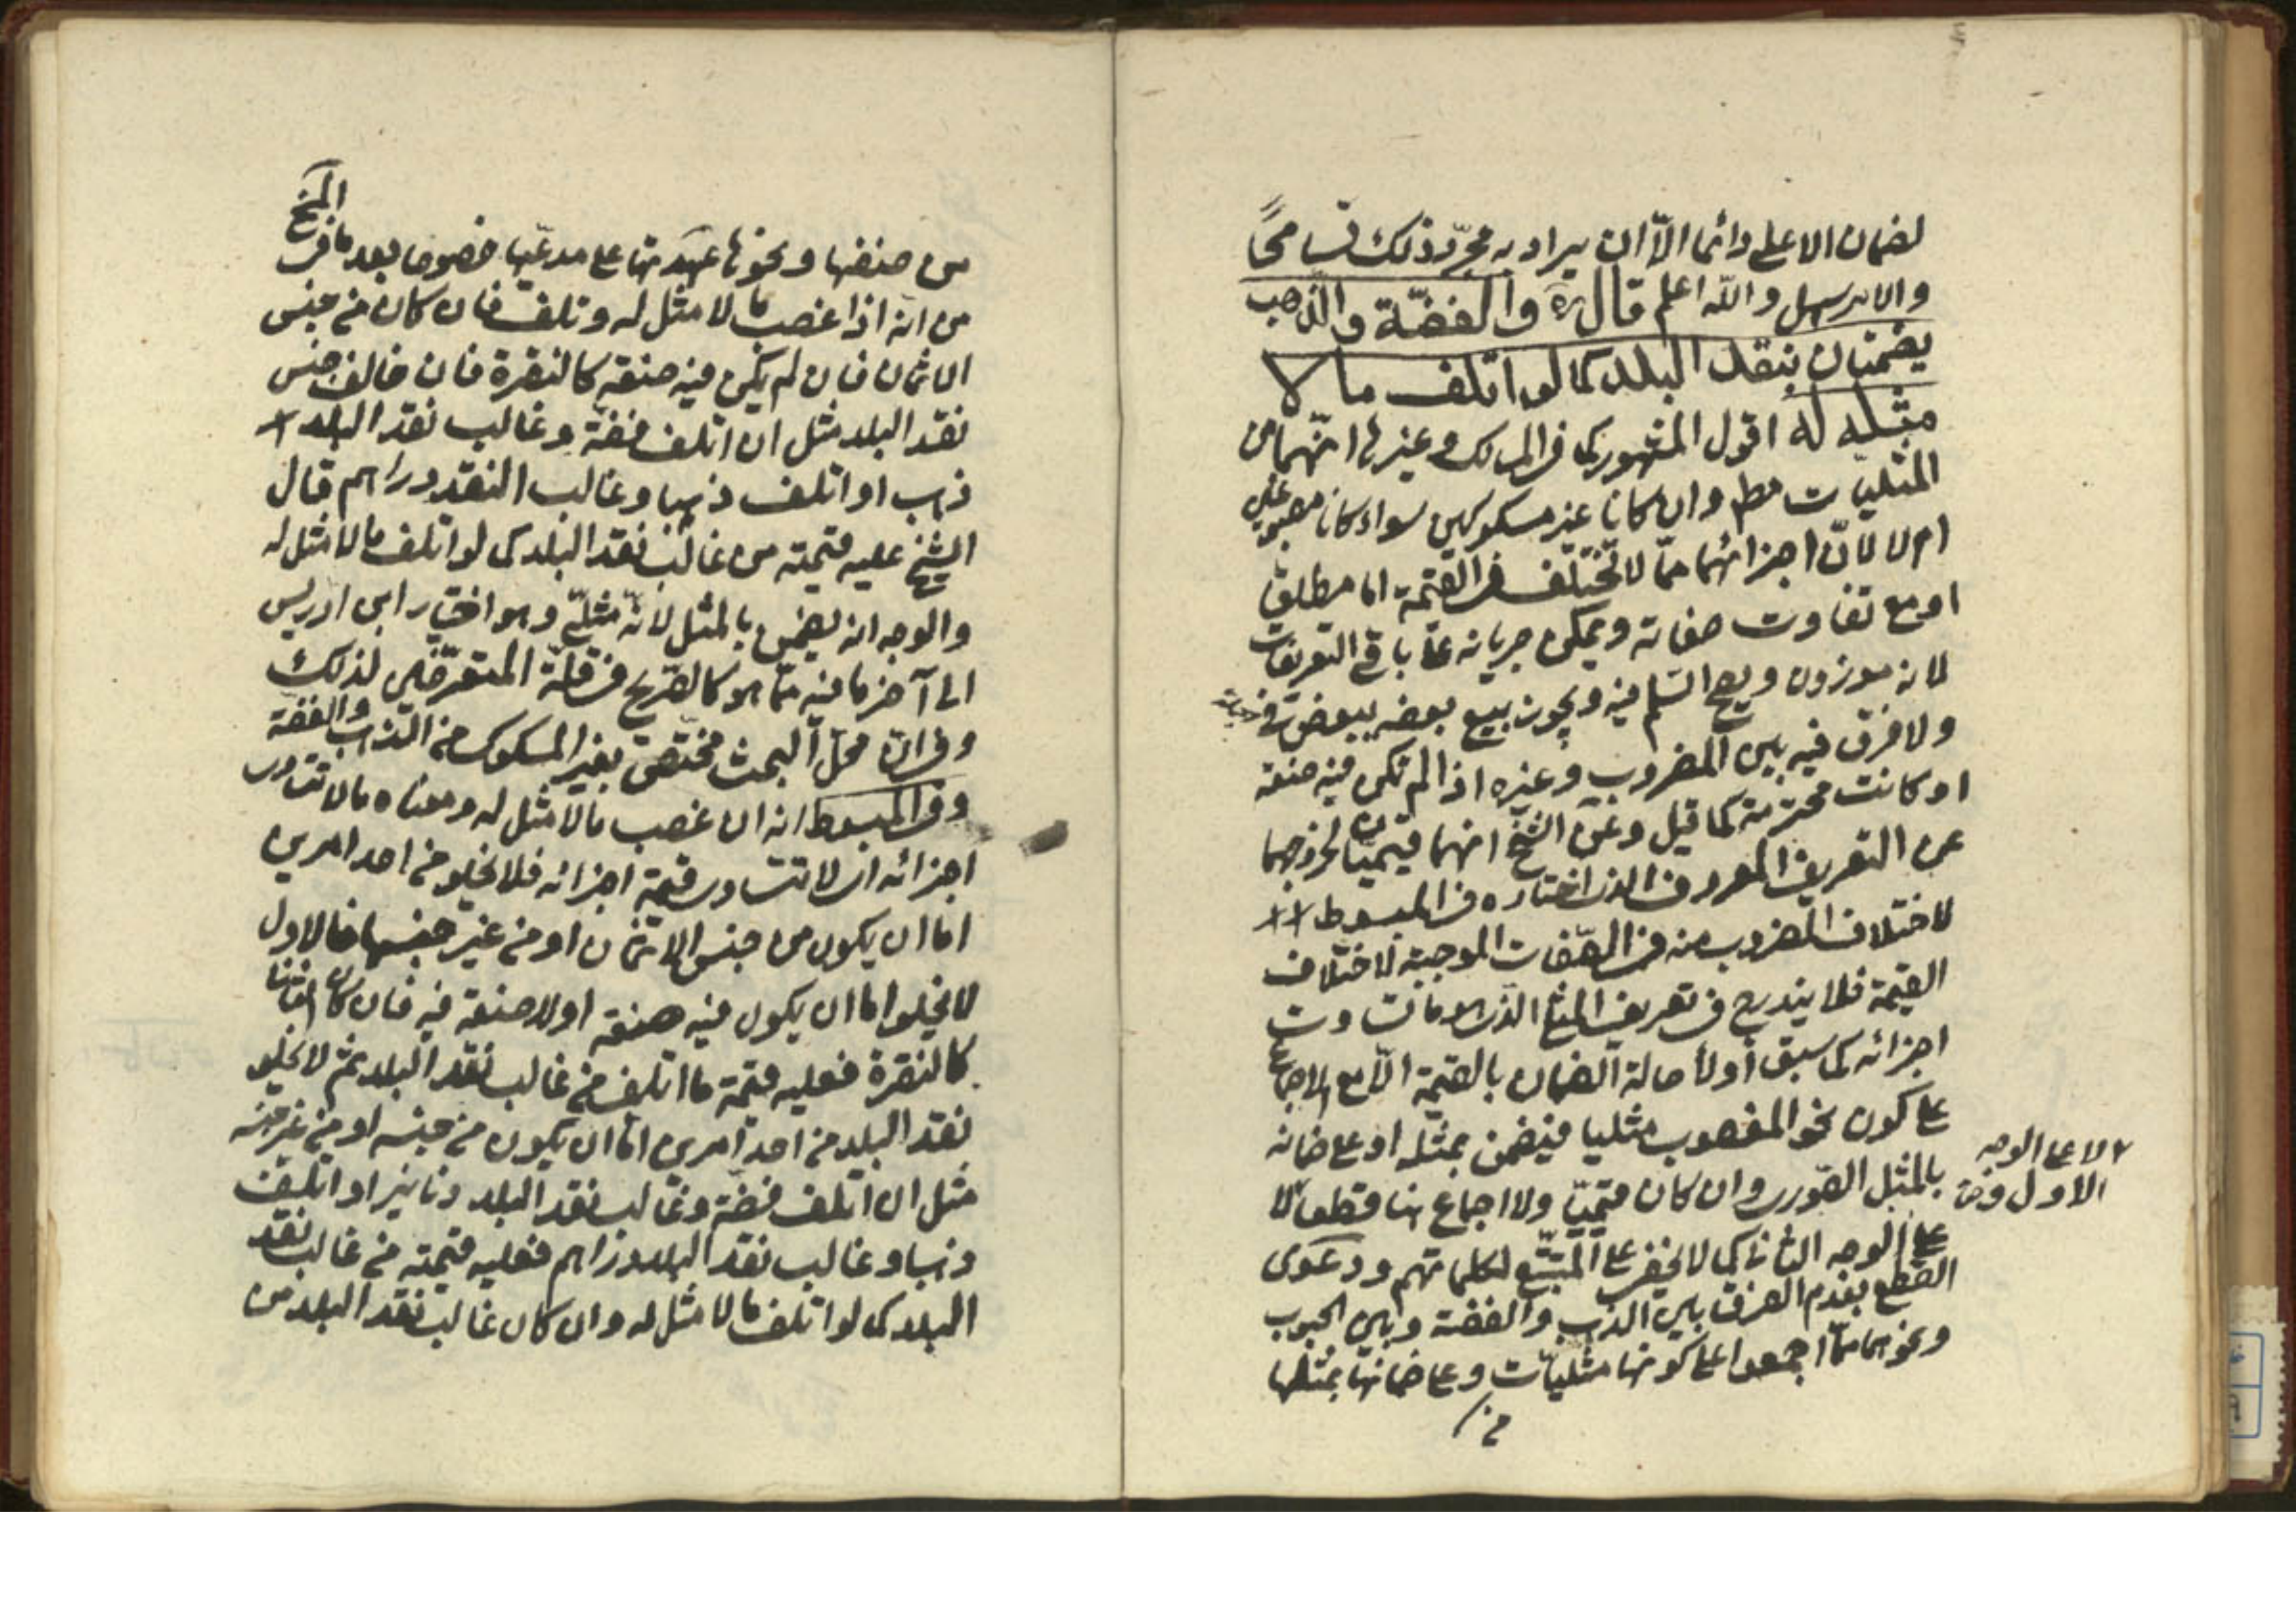 لضمان الاعلى دائما الّا ان يراد به مجرّد ذلك تسامحًا
والامر سهل والله اعلم قال ره والفضّة والذّهب
يضمنان بنقد البلد كما لو اتلف ما لا
مثله له اقول المشهور كما فى المسالك وغيرها انّهما من
المثليات مط وان كانا غير مسكوكين سواء كانا مصوغين
ام لا لانّ اجزائهما ممّا لا تختلف فى القيمة اما مطلقا
او مع تفاوت صفاته ويمكن جريانه على باقى التعريفات
لانه موزون ويصح السّلم فيه ويجوز بيع بعضه ببعض
ولا فرق فيه بين المضروب وغيره اذا لم تكن فيه صنعة
او كانت محترمة كما قيل وعن الشيخ انهما قيميّان لخروجهما
عن التعريف المعروف الذى اختاره فى المبسوط
لاختلاف المضروب منه فى الصّفات الموجبة لاختلاف
القيمة فلا يندرج فى تعريف المثلى الذى هو ما تساوت
اجزائه كما سبق او لأصالة الضمان بالقيمة الّا مع الاجماع
على كون نحو المغصوب مثليا فيضمن بمثله او على ضمانه
بالمثل الصّورى وان كان قيميّا ولا اجماع هنا قطعا لا
لا على الوجه
الاول و لا
على الوجه الثانى كما لا يخفى على المتتبّع لكلماتهم ودعوى
القطع بعدم الفرق بين الذهب والفضة وبين الحبوب
ونحوهما ممّا اجمعوا على كونها مثليّات وعلى ضمانها بمثلها
من
من صنفها ونحوها عهدتها على مدعّيها خصوصا بعد ما فى المخ
من انّه اذا غصب ما لا مثل له وتلف فان كان من جنس
الاثمان فان لم يكن فيه صنعة كالنقرة فان خالف جنس
نقد البلد مثل ان اتلف فضة وغالب نقد البلد
ذهب او اتلف ذهبا وغالب النقد دراهم قال
الشيخ عليه قيمته من غالب نقد البلد كما لو اتلف ما لا مثل له
والوجه انه يضمن بالمثل لانّه مثلىّ وهو اختيار ابن ادريس
الى آخر ما فيه ممّا هو كالصّريح فى قلّة المتعرّضين لذلك
وفى انّ محلّ البحث مختصّ بغير المسكوك من الذهب والفضة
وفى المبسوط انه ان غصب ما لا مثل له ومعناه ما لا تتساوى
اجزائه اى لا تتساوى قيمة اجزائه فلا يخلو من احد امرين
اما ان يكون من جنس الاثمان او من غير جنسها فالاول
لا يخلو اما ان يكون فيه صنعة او لا صنعة فيه فان كان
كالنقرة فعليه قيمة ما اتلف من غالب نقد البلد ثم لا يخلو
نقد البلد من احد امرين امّا ان يكون من جنسه او من غير جنسه
مثل ان اتلف فضّة وغالب نقد البلد دنانير او اتلف
ذهبا وغالب نقد البلد دراهم فعليه قيمته من غالب نقد
البلد كما لو اتلف ما لا مثل له وان كان غالب نقد البلد من